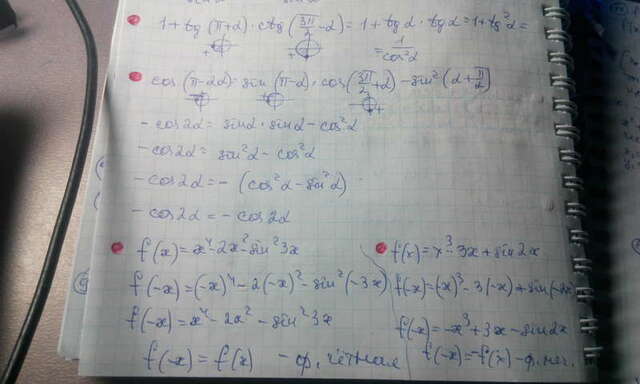 1 + tg (π+α) · ctg (3π/2 - α) = 1 + tg α · tg α = 1 + tg²α =
= 1/cos²α
cos (π-2α) = sin (π-α) · cos (3π/2 + α) - sin² (α + π/2)
- cos 2α = sin α · sin α - cos²α
- cos 2α = sin²α - cos²α
- cos 2α = - (cos²α - sin²α)
- cos 2α = - cos 2α
f(x) = x⁴ - 2x² - sin²3x
f(-x) = (-x)⁴ - 2(-x)² - sin²(-3x)
f(-x) = x⁴ - 2x² - sin²3x
f(-x) = f(x) - ф. чётная
f(x) = x³ - 3x + sin 2x
f(-x) = (-x)³ - 3(-x) + sin(-2x)
f(-x) = -x³ + 3x - sin 2x
f(-x) = -f(x) - ф. неч.